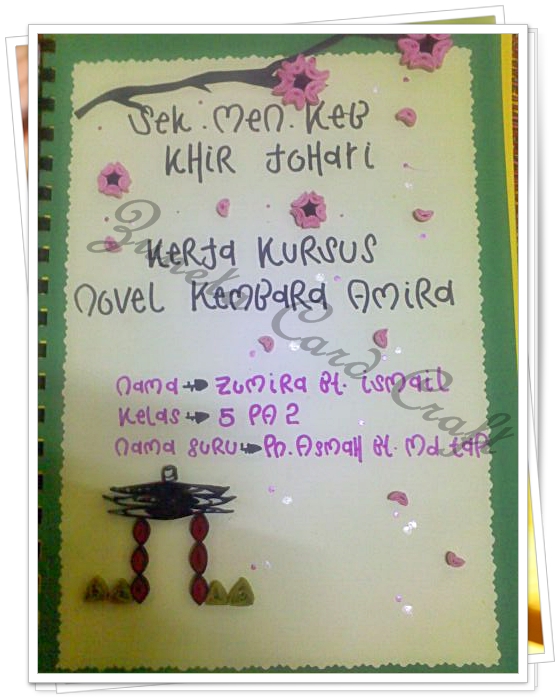 Sek. Men. Keb
Khir Johari
Kerja Kursus
Novel Kembara Amira
Nama → Zumira Bt. Ismail
Kelas → 5 PA 2
Nama Guru → Pn. Asmah Bt. Md. Tap
Card Craft